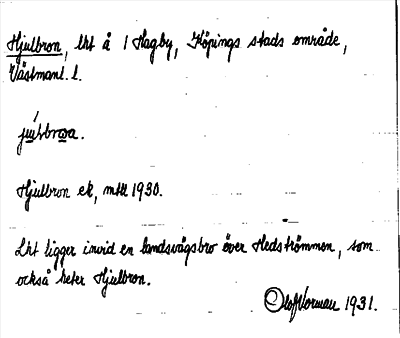 Hjulbron, lht å 1 Hagby, Köpings stads område,
Västmanl. l.
Hjulbron ek, mtlk 1930.
Lht ligger invid en landsvägsbro över Hedströmmen, som
också heter Hjulbron.
Olof Norman 1931.